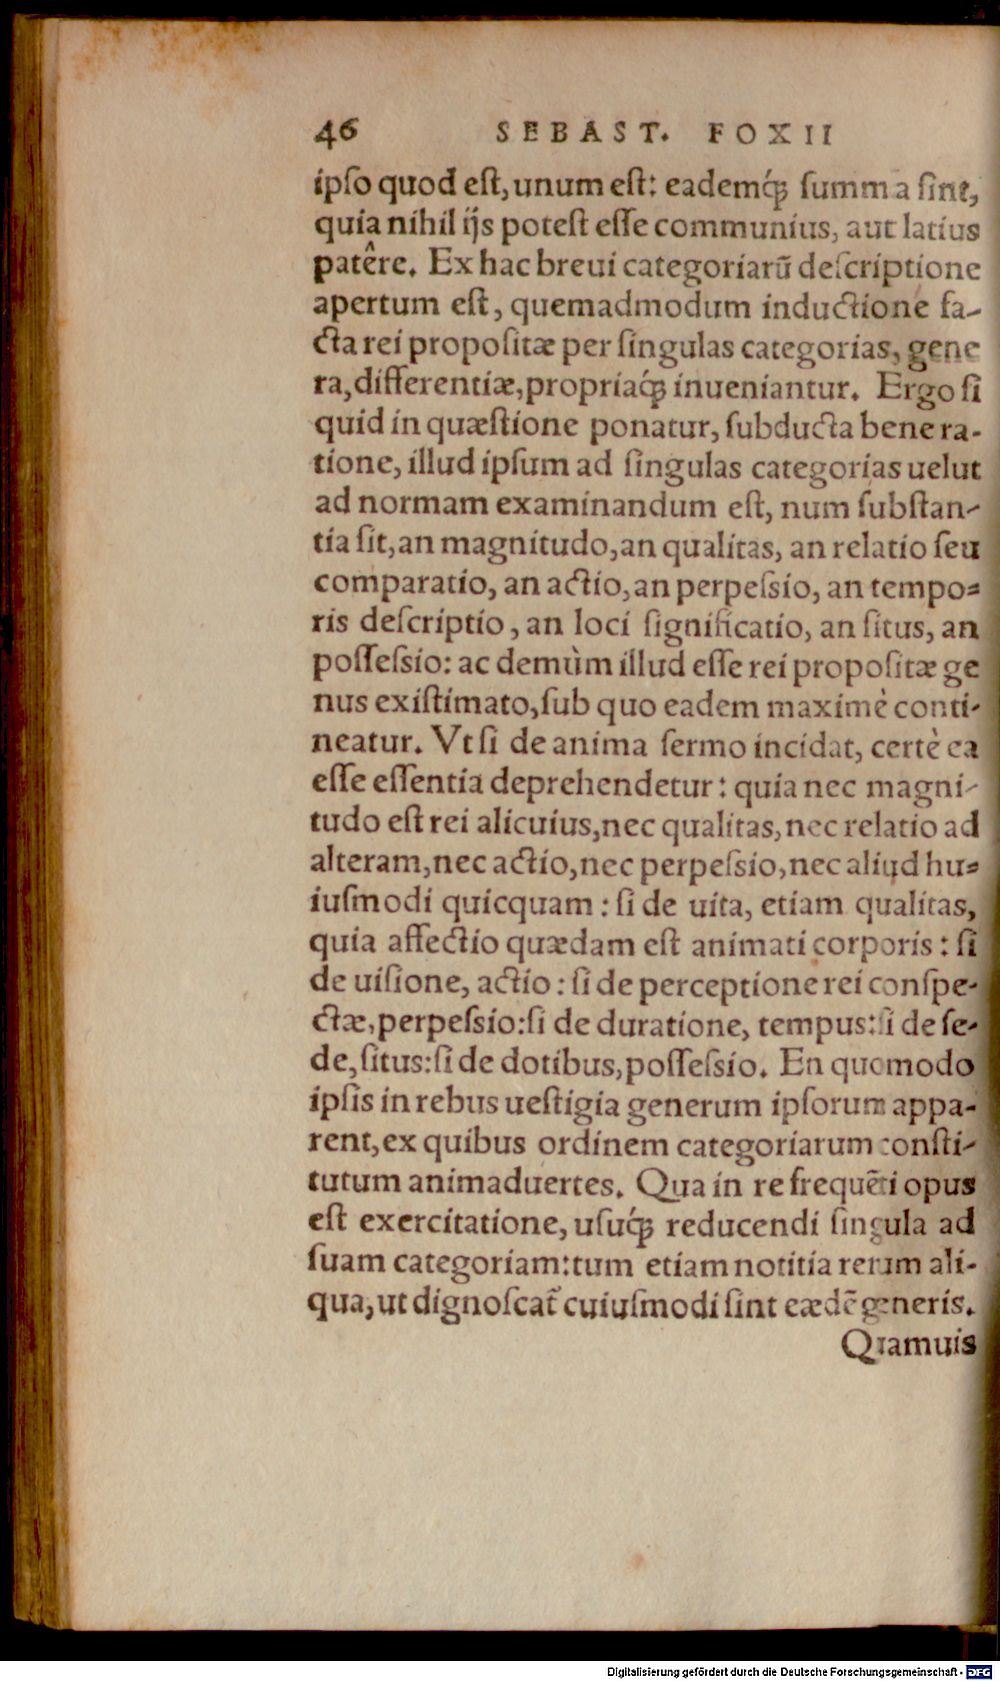 46 SEBAST. FOXII
ipſo quod eſt, unum eſt: eademq́ꝫ ſumma ſint,
quia nihil ijs poteſt eſſe communius, aut latius
patêre. Ex hac breui categoriarũ deſcriptione
apertum eſt, quemadmodum inductione fa-
cta rei propoſitæ per ſingulas categorias, gene
ra, differentiæ, propriaq́ꝫ inueniantur. Ergo ſi
quid in quæſtione ponatur, ſubducta bene ra-
tione, illud ipſum ad ſingulas categorias uelut
ad normam examinandum eſt, num ſubſtan-
tia ſit, an magnitudo, an qualitas, an relatio ſeu
comparatio, an actio, an perpeſsio, an tempo-
ris deſcriptio, an loci ſignificatio, an ſitus, an
poſſeſsio: ac demùm illud eſſe rei propoſitæ ge
nus exiſtimato, ſub quo eadem maximè conti-
neatur. Vt ſi de anima ſermo incidat, certè ea
eſſe eſſentia deprehendetur: quia nec magni-
tudo eſt rei alicuius, nec qualitas, nec relatio ad
alteram, nec actio, nec perpeſsio, nec aliud hu-
iuſmodi quicquam: ſi de uita, etiam qualitas,
quia affectio quædam eſt animati corporis: ſi
de uiſione, actio: ſi de perceptione rei conſpe-
ctæ, perpeſsio: ſi de duratione, tempus: ſi de ſe-
de, ſitus: ſi de dotibus, poſſeſsio. En quomodo
ipſis in rebus ueſtigia generum ipſorum appa-
rent, ex quibus ordinem categoriarum conſti-
tutum animaduertes. Qua in re frequẽti opus
eſt exercitatione, uſuq́ꝫ reducendi ſingula ad
ſuam categoriam: tum etiam notitia rerum ali-
qua, ut dignoſcat̃ cuiuſmodi ſint eædẽ generis.
Quamuis
Digitalisierung gefördert durch die Deutsche Forschungsgemeinschaft - DFG